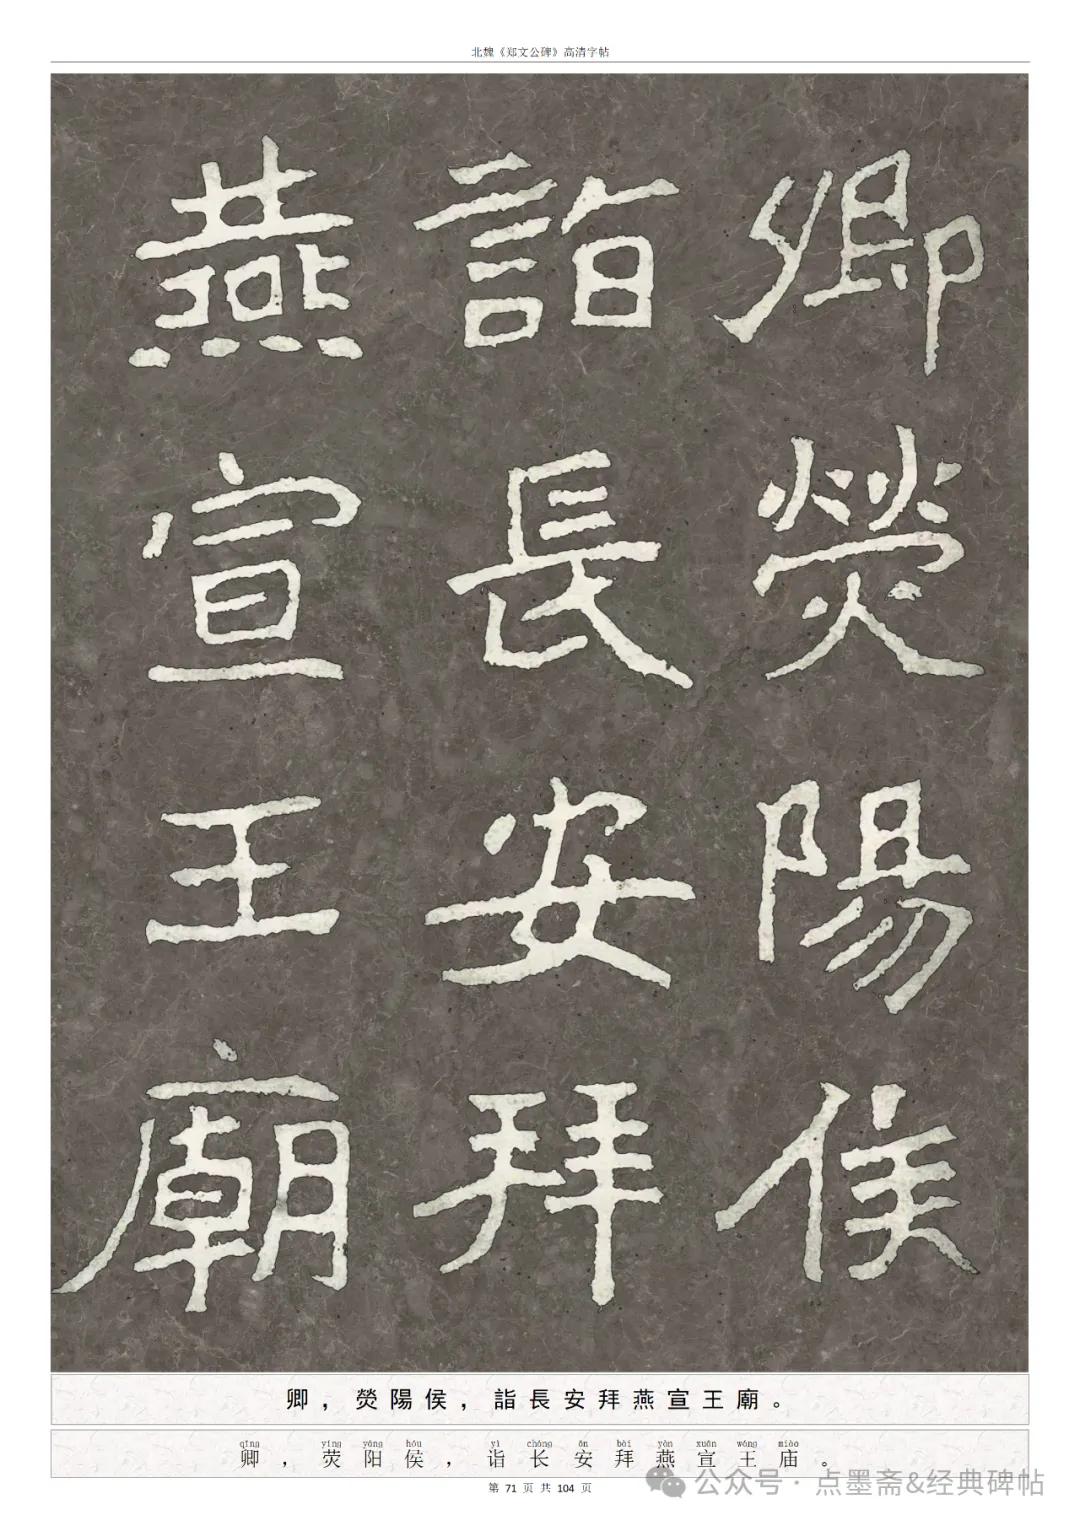 北魏《郑文公碑》高清字帖
卿熒陽侯
詣長安拜
燕宣王廟
卿，熒陽侯，詣長安拜燕宣王廟。
qīng yíng yáng hóu yì cháng ān bài yān xuān wáng miào
卿，荧阳侯，诣长安拜燕宣王庙。
第 71 页 共 104 页
公众号 · 点墨斋&经典碑帖